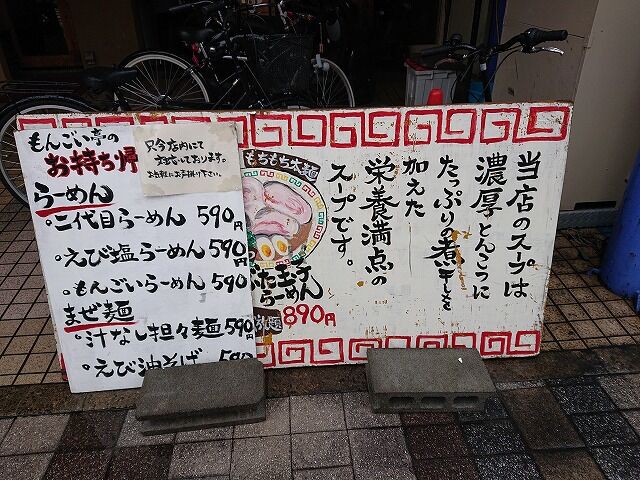 もんごい亭の
お持ち帰
只今店内にて
お気軽にお声掛け下さい。
らーめん
。二代目らーめん 590円
。えび塩らーめん 590円
。もんごいらーめん 590
まぜ麺
。汁なし担々麺 590円
。えび油そば 590
もちもち太麺
らーめん
890円
当店のスープは
濃厚とんこつに
たっぷりの煮干しを
加えた
栄養満点の
スープです。